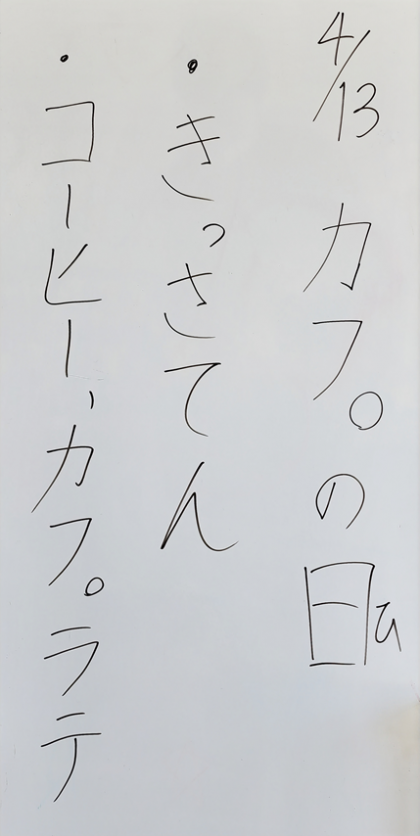 4/13 カフ。の日ひ
・きっさてん
・コーヒー、カフ。ラテ